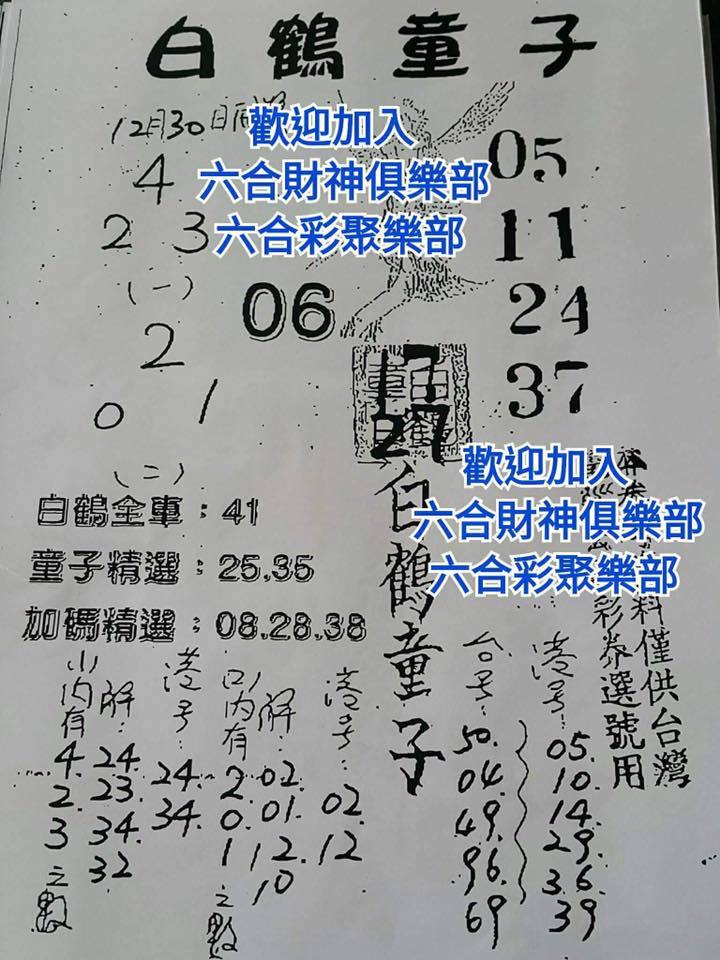 白鶴童子
12月30日
歡迎加入
六合財神俱樂部
六合彩聚樂部
4
2 3
(一)
2
0 1
(二)
06
05
11
24
37
17
27
白鶴童子
歡迎加入
六合財神俱樂部
六合彩聚樂部
料僅供台灣
彩券選號用
白鶴全車：41
童子精選：25.35
加碼精選：08.28.38
(一)內有
4.
2.
3
之數
解：
24.
23.
34.
32
港号：
24.
34.
(二)內有
2.
0.
1
之數
解：
02.
01.
12.
10
港号：
02.
12
台号：
50.
04.
49.
96.
69
港号：
05.
10.
14.
29.
36.
39